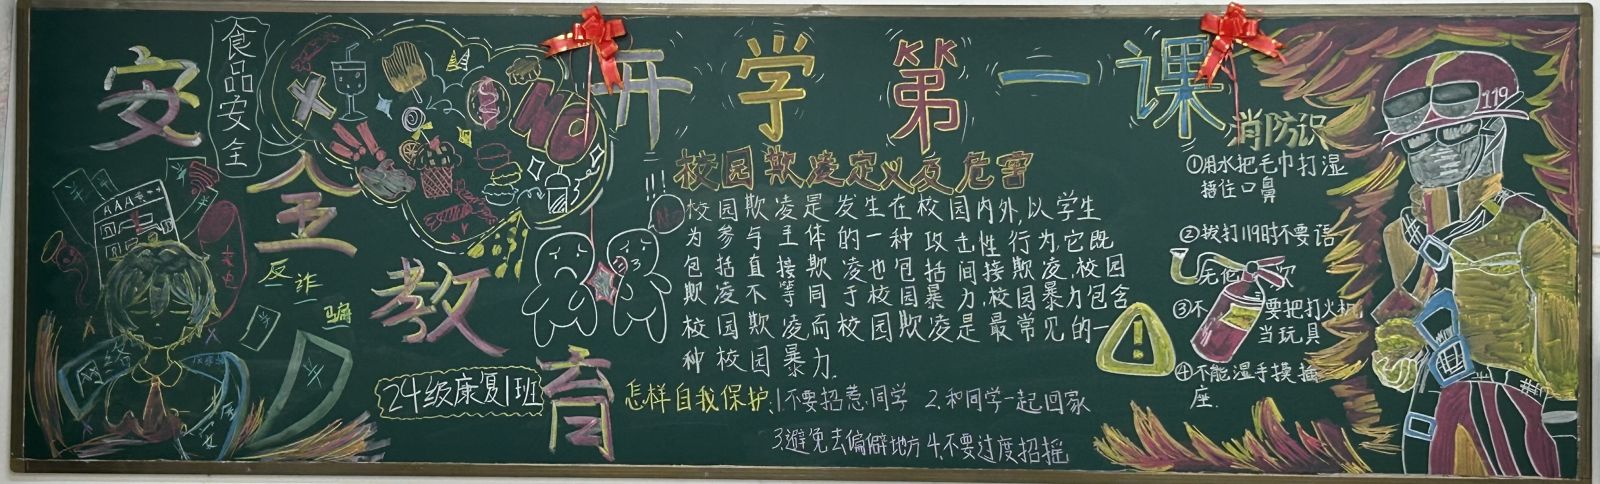 开学第一课
安全教育
食品安全
NO
反诈
马扁
网络
24级康复1班
校园欺凌定义及危害
!!!
校园欺凌是发生在校园内外,以学生
为参与主体的一种攻击性行为,它既
包括直接欺凌也包括间接欺凌,校园
欺凌不等同于校园暴力,校园暴力包含
校园欺凌而校园欺凌是最常见的一
种校园暴力.
怎样自我保护:1.不要招惹同学 2.和同学一起回家
3.避免去偏僻地方 4.不要过度招摇
消防识
①用水把毛巾打湿
捂住口鼻
②拨打119时不要语
无伦 次
③不 要把打火机
当玩具
④不能湿手摸插
座.
119